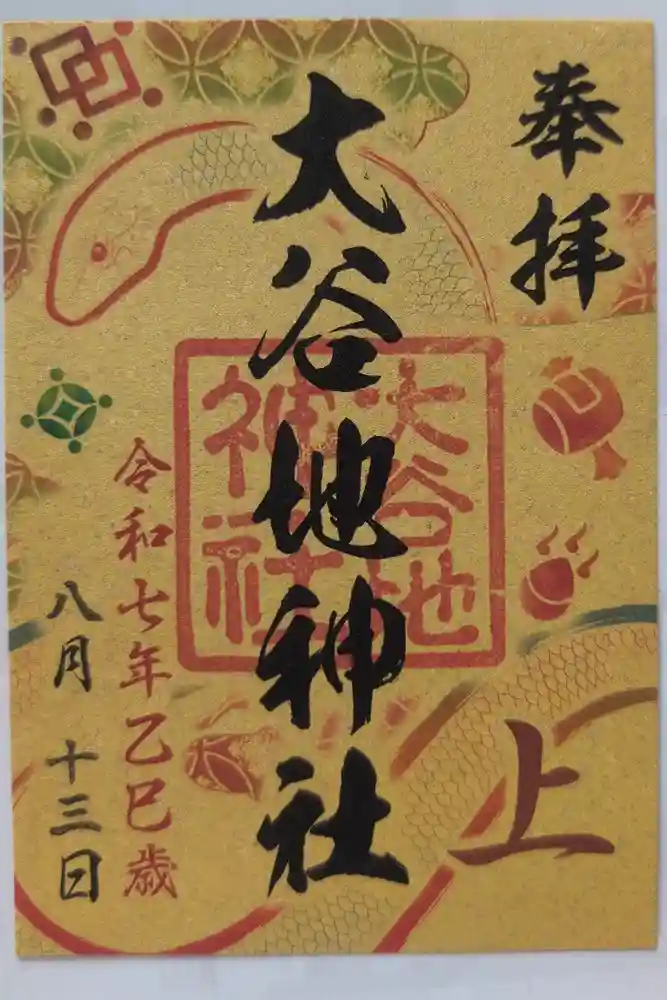 奉拝
上
大谷地神社
大谷地
神社
令和七年乙巳歳
八月十三日